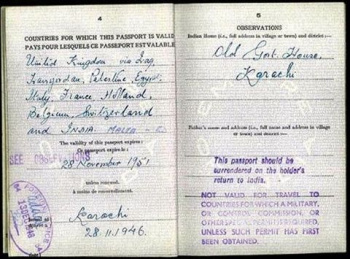 4
COUNTRIES FOR WHICH THIS PASSPORT IS VALID
PAYS POUR LESQUELS CE PASSEPORT EST VALABLE
United Kingdom via Iraq
Transjordan, Palestine, Egypt
Italy, France, Holland,
Belgium, Switzerland
and INDIA. MALTA
SEE OBSERVATIONS
The validity of this passport expires:
28 November 1951
unless renewed.
Karachi
28.11.1946.
5
OBSERVATIONS
Indian Home (i.e., full address in village or town) and district:—
Old Govt. House,
Karachi
Father's name and address (i.e., full name and address in village
or town) and district:—
This passport should be
surrendered on the holder's
return to India.
NOT VALID FOR TRAVEL TO
COUNTRIES FOR WHICH A MILITARY,
OR CONTROL COMMISSION, OR
UNLESS SUCH PERMIT HAS FIRST
BEEN OBTAINED.